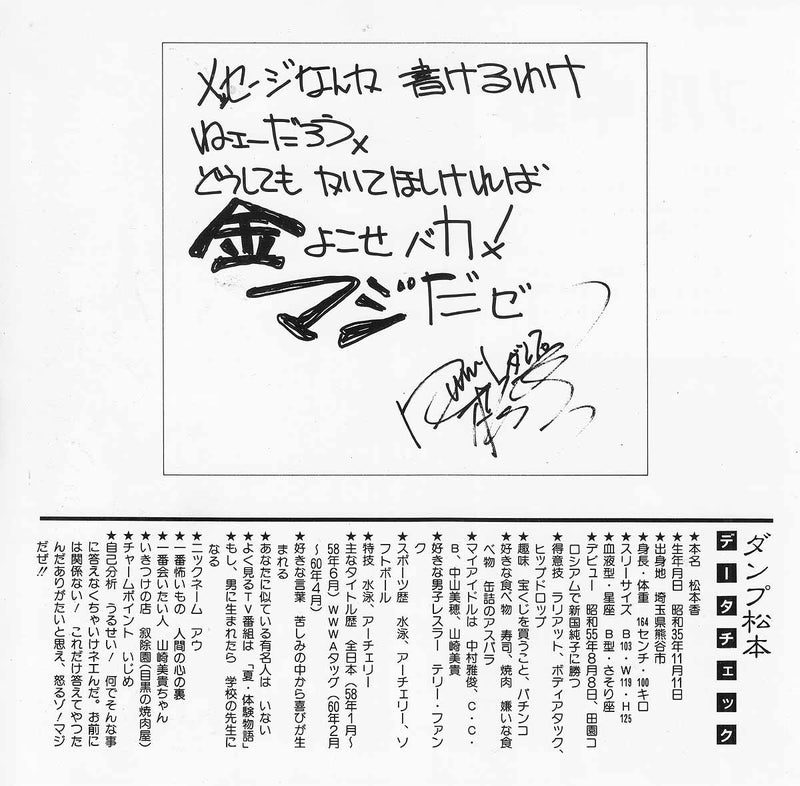 メッセージなんか 書けるわけ
ねェーだろう。
どうしても かいてほしければ
金 よこせ バカ!
マジだぜ
ダンプ松本
データチェック
★本名　松本香
★生年月日　昭和35年11月11日
★出身地　埼玉県熊谷市
★身長・体重　164センチ・100キロ
★スリーサイズ　B103・W119・H125
★血液型・星座　B型・さそり座
★デビュー　昭和55年8月8日、田園コ
ロシアムで新国純子に勝つ
★得意技　ラリアット、ボディアタック、
ヒップドロップ
★趣味　宝くじを買うこと、パチンコ
★好きな食べ物　寿司、焼肉　嫌いな食
べ物　缶詰のアスパラ
★マイアイドルは　中村雅俊、C・C・
B、中山美穂、山崎美貴
★好きな男子レスラー　テリー・ファン
ク
★スポーツ歴　水泳、アーチェリー、ソ
フトボール
★特技　水泳、アーチェリー
★主なタイトル歴　全日本（58年1月〜
58年6月）WWWAタッグ（60年2月
〜60年4月）
★好きな言葉　苦しみの中から喜びが生
まれる
★あなたに似ている有名人は　いない
★よく見るTV番組は　「夏・体験物語」
★もし、男に生まれたら　学校の先生に
なる
★ニックネーム　アウ
★一番怖いもの　人間の心の裏
★一番会いたい人　山崎美貴ちゃん
★いきつけの店　叙除園（目黒の焼肉屋）
★チャームポイント　いじめ
★自己分析　うるせい！何でそんな事
に答えなくちゃいけネエんだ。お前に
は関係ない！　これだけ答えてやった
んだありがたいと思え、怒るゾ！マジ
だぜ!!